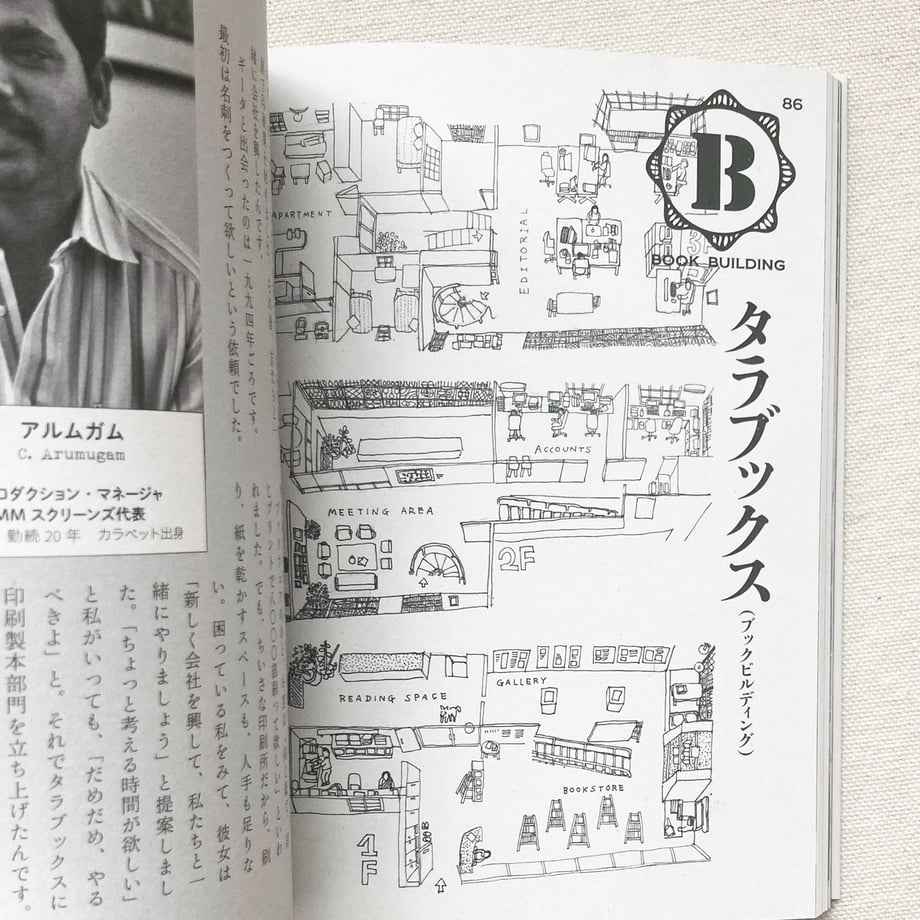 最初は名刺をつくって欲しいという依頼でした。
ギータと出会ったのは一九九四年ごろです。
アルムガム
C. Arumugam
ロダクション・マネージャ
MM スクリーンズ代表
勤続20年 カラベット出身
れました。でも、ちいさな印刷所だから、刷
り、紙を乾かすスペースも、人手も足りな
い。困っている私をみて、彼女は
「新しく会社を興して、私たちと一
緒にやりましょう」と提案しまし
た。「ちょっと考える時間が欲しい」
と私がいっても、「だめだめ、やる
べきよ」と。それでタラブックスに
印刷製本部門を立ち上げたんです。
86
B
BOOK BUILDING
タラブックス
(ブックビルディング)
APARTMENT
EDITORIAL
3F
ACCOUNTS
MEETING AREA
2F
READING SPACE
GALLERY
BOOKSTORE
1F